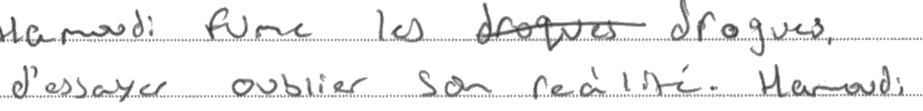 Hamoudi fume les droques drogues,
d'essayer oublier son reàlité. Hamoudi